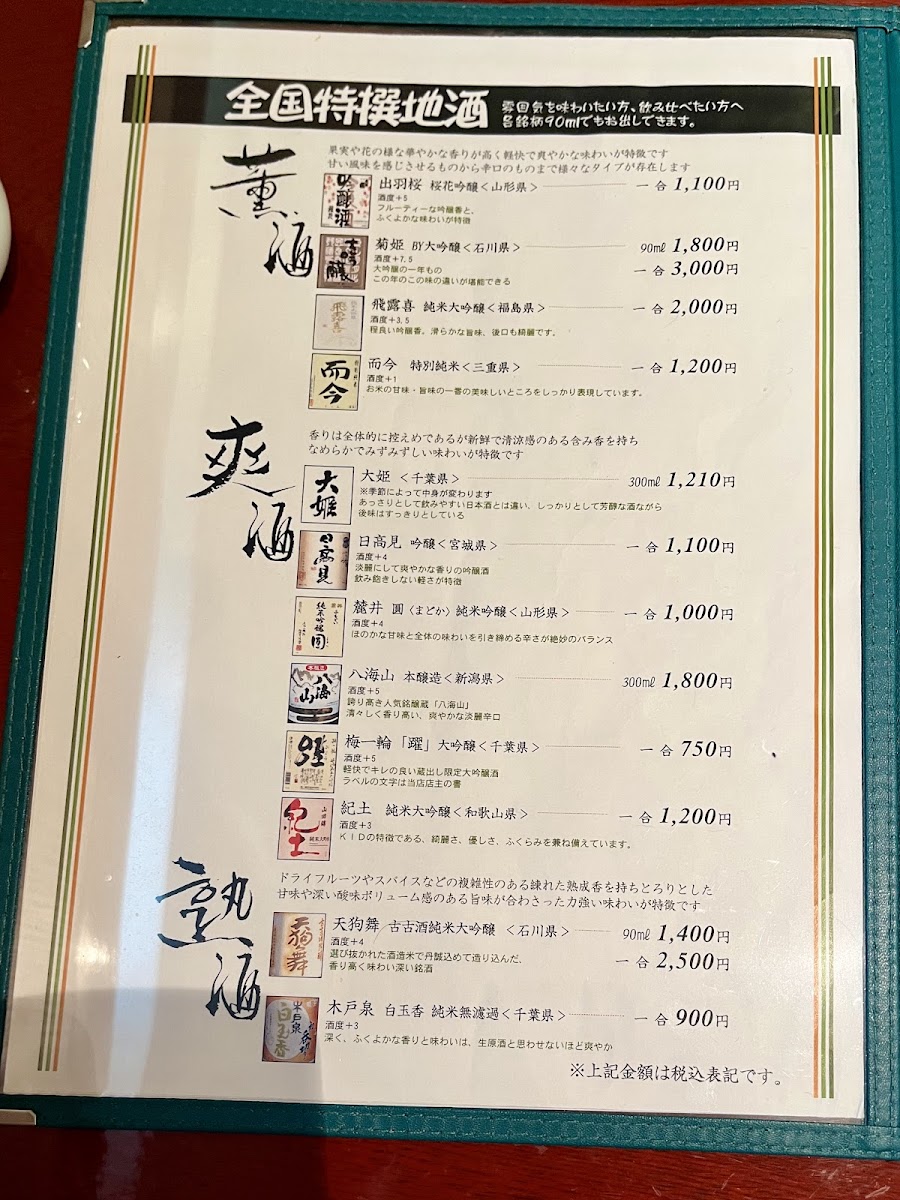 全国特撰地酒
雰囲気を味わいたい方、飲み比べたい方へ
各銘柄90mlでもお出しできます。
薫酒
果実や花の様な華やかな香りが高く軽快で爽やかな味わいが特徴です
甘い風味を感じさせるものから辛口のものまで様々なタイプが存在します
吟醸酒
出羽桜 桜花吟醸<山形県> 一合 1,100円
酒度+5
フルーティーな吟醸香と、
ふくよかな味わいが特徴
菊姫 BY大吟醸<石川県> 90㎖ 1,800円
酒度+7.5 一合 3,000円
大吟醸の一年もの
この年のこの味の違いが堪能できる
飛露喜
飛露喜 純米大吟醸<福島県> 一合 2,000円
酒度+3.5
程良い吟醸香。滑らかな旨味、後口も綺麗です。
而今
而今 特別純米<三重県> 一合 1,200円
酒度+1
お米の甘味・旨味の一番の美味しいところをしっかり表現しています。
爽酒
香りは全体的に控えめであるが新鮮で清涼感のある含み香を持ち
なめらかでみずみずしい味わいが特徴です
大姫
大姫 <千葉県> 300㎖ 1,210円
※季節によって中身が変わります
あっさりとして飲みやすい日本酒とは違い、しっかりとして芳醇な酒ながら
後味はすっきりとしている
日高見
日高見 吟醸<宮城県> 一合 1,100円
酒度+4
淡麗にして爽やかな香りの吟醸酒
飲み飽きしない軽さが特徴
純米吟醸 圓
麓井 圓〈まどか〉純米吟醸<山形県> 一合 1,000円
酒度+4
ほのかな甘味と全体の味わいを引き締める辛さが絶妙のバランス
八海山
八海山 本醸造<新潟県> 300㎖ 1,800円
酒度+5
誇り高き人気銘醸蔵「八海山」
清々しく香り高い、爽やかな淡麗辛口
梅一輪「躍」大吟醸<千葉県> 一合 750円
酒度+5
軽快でキレの良い蔵出し限定大吟醸酒
ラベルの文字は当店店主の書
山田錦
紀土
純米大吟醸
紀土 純米大吟醸<和歌山県> 一合 1,200円
酒度+3
KIDの特徴である、綺麗さ、優しさ、ふくらみを兼ね備えています。
熟酒
ドライフルーツやスパイスなどの複雑性のある練れた熟成香を持ちとろりとした
甘味や深い酸味ボリューム感のある旨味が合わさった力強い味わいが特徴です
天狗舞
天狗舞 古古酒純米大吟醸 <石川県> 90㎖ 1,400円
酒度+4 一合 2,500円
選び抜かれた酒造米で丹誠込めて造り込んだ、
香り高く味わい深い銘酒
木戸泉
白玉香
木戸泉 白玉香 純米無濾過<千葉県> 一合 900円
酒度+3
深く、ふくよかな香りと味わいは、生原酒と思わせないほど爽やか
※上記金額は税込表記です。